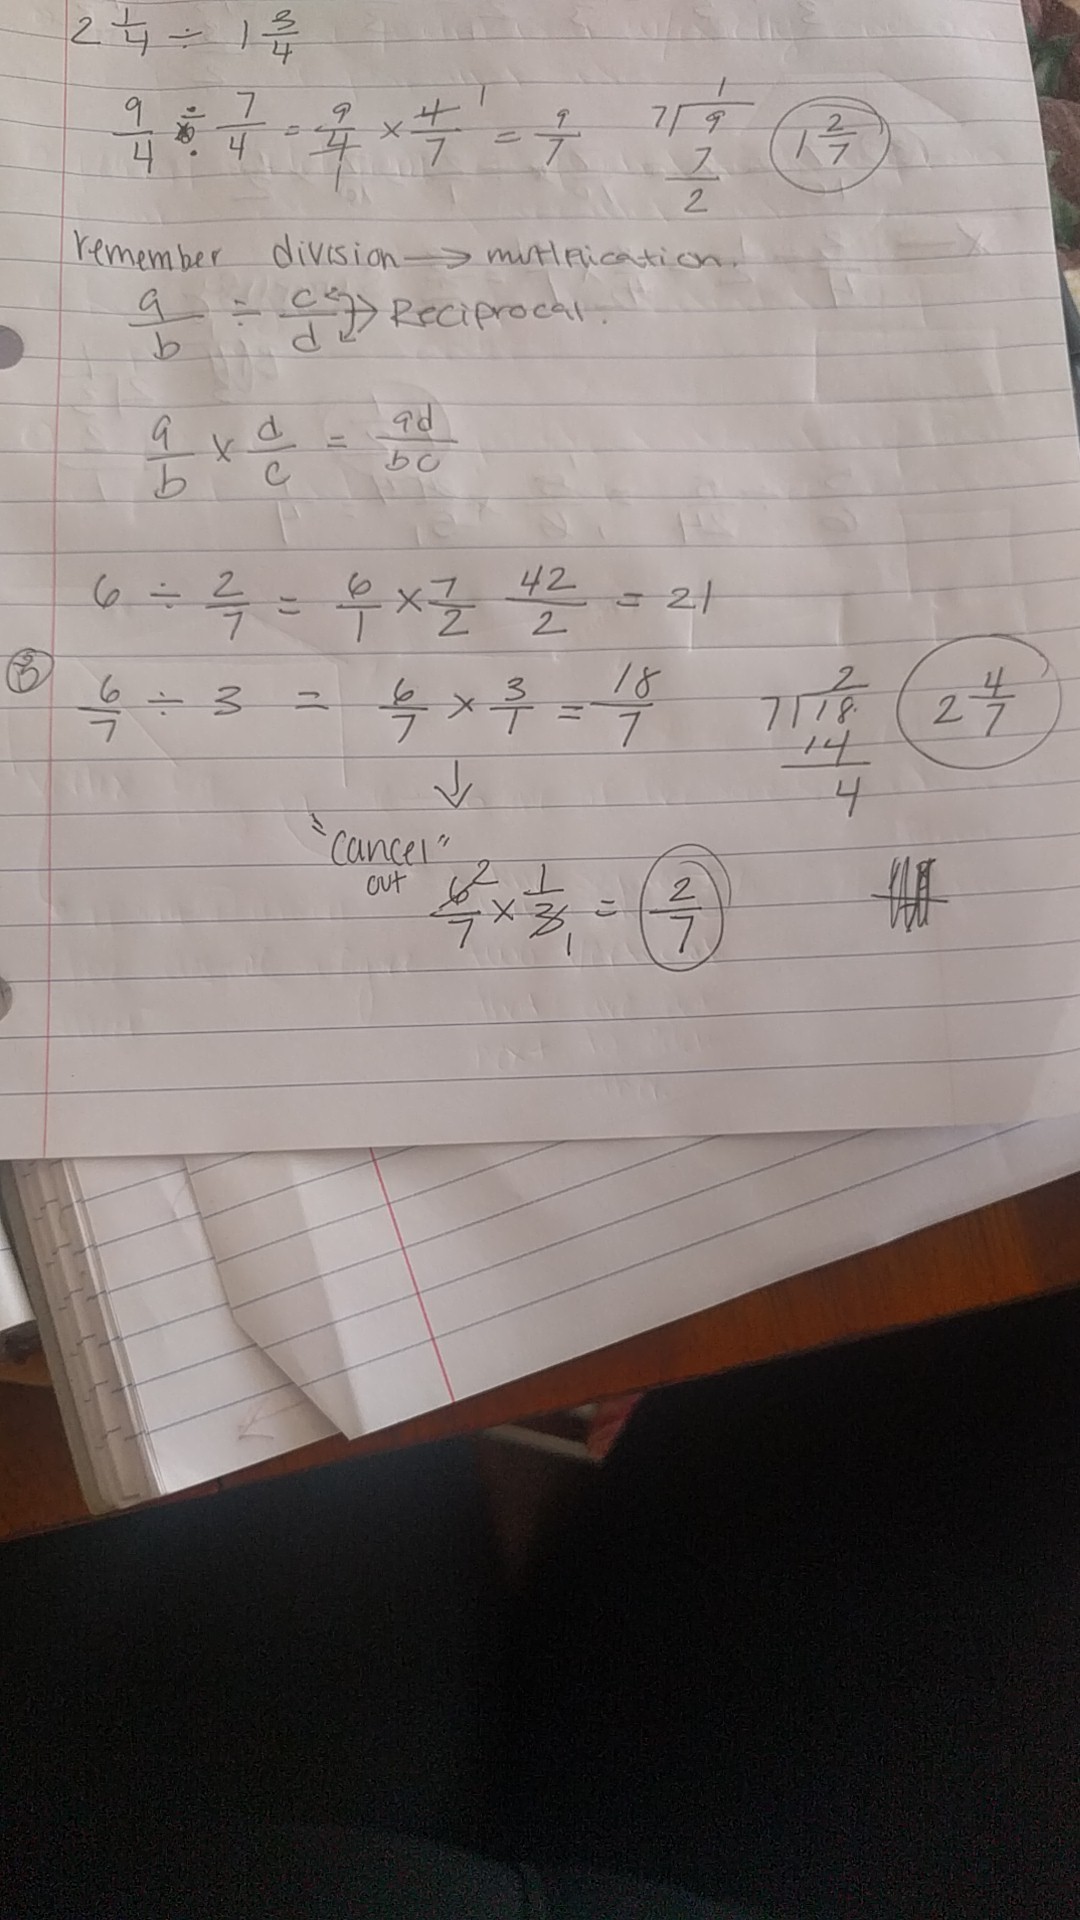 2 1/4 ÷ 1 3/4
9/4 ÷ 7/4 = 9/4 1 × 4/7 1 = 9/7 7)9 1 7 2 1 2/7
remember division → mutlplication.
a/b ÷ c/d → Reciprocal.
a/b × d/c = ad/bc
6 ÷ 2/7 = 6/1 × 7/2 42/2 = 21
6/7 ÷ 3 = 6/7 × 3/1 = 18/7 7)18 2 14 4 2 4/7
↓
"Cancel"
out 6/7 2 × 1/3 1 = 2/7